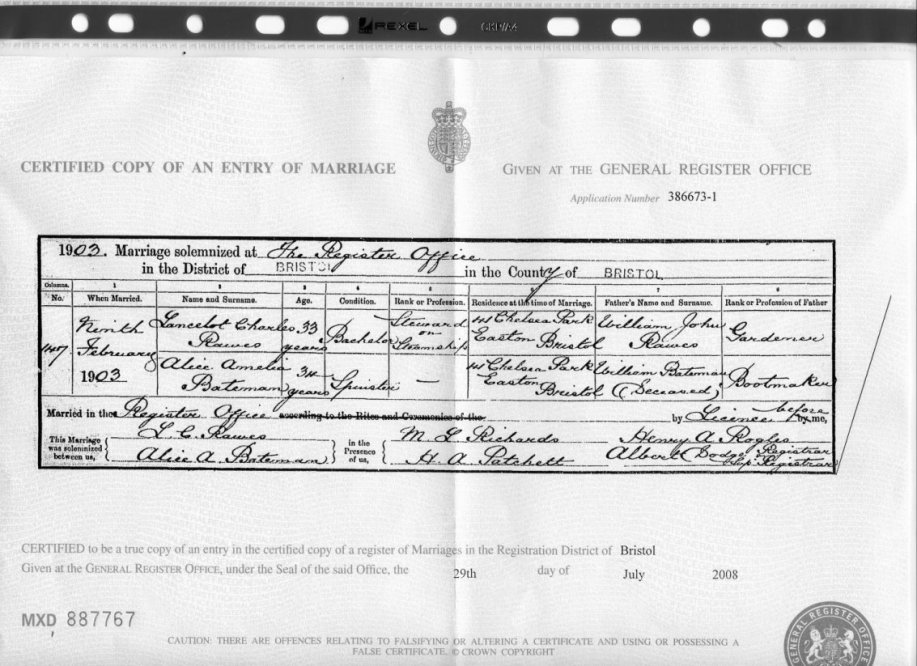 REXEL
CERTIFIED COPY OF AN ENTRY OF MARRIAGE
GIVEN AT THE GENERAL REGISTER OFFICE
Application Number 386673-1
1903. Marriage solemnized at The Register Office
in the District of BRISTOL in the County of BRISTOL
Columns. 1 2 3 4 5 6 7 8
No. When Married. Name and Surname. Age. Condition. Rank or Profession. Residence at the time of Marriage. Father's Name and Surname. Rank or Profession of Father
147 Ninth February 1903
Lancelot Charles Rawes 33 years Bachelor Steward on a Steamship 44 Chelsea Park Easton Bristol William John Rawes Gardener
Alice Amelia Bateman 34 years Spinster — 44 Chelsea Park Easton Bristol William Bateman (Deceased) Bootmaker
Married in the Register Office according to the Rites and Ceremonies of the by Licence before by me,
This Marriage was solemnized between us, L. C. Rawes Alice A. Bateman
in the Presence of us, M. L. Richards H. A. Patchett
Henry A. Registrar
Albert Dodge Sup. Registrar
CERTIFIED to be a true copy of an entry in the certified copy of a register of Marriages in the Registration District of Bristol
Given at the GENERAL REGISTER OFFICE, under the Seal of the said Office, the 29th day of July 2008
MXD 887767
CAUTION: THERE ARE OFFENCES RELATING TO FALSIFYING OR ALTERING A CERTIFICATE AND USING OR POSSESSING A
FALSE CERTIFICATE. © CROWN COPYRIGHT
GENERAL REGISTER OFFICE